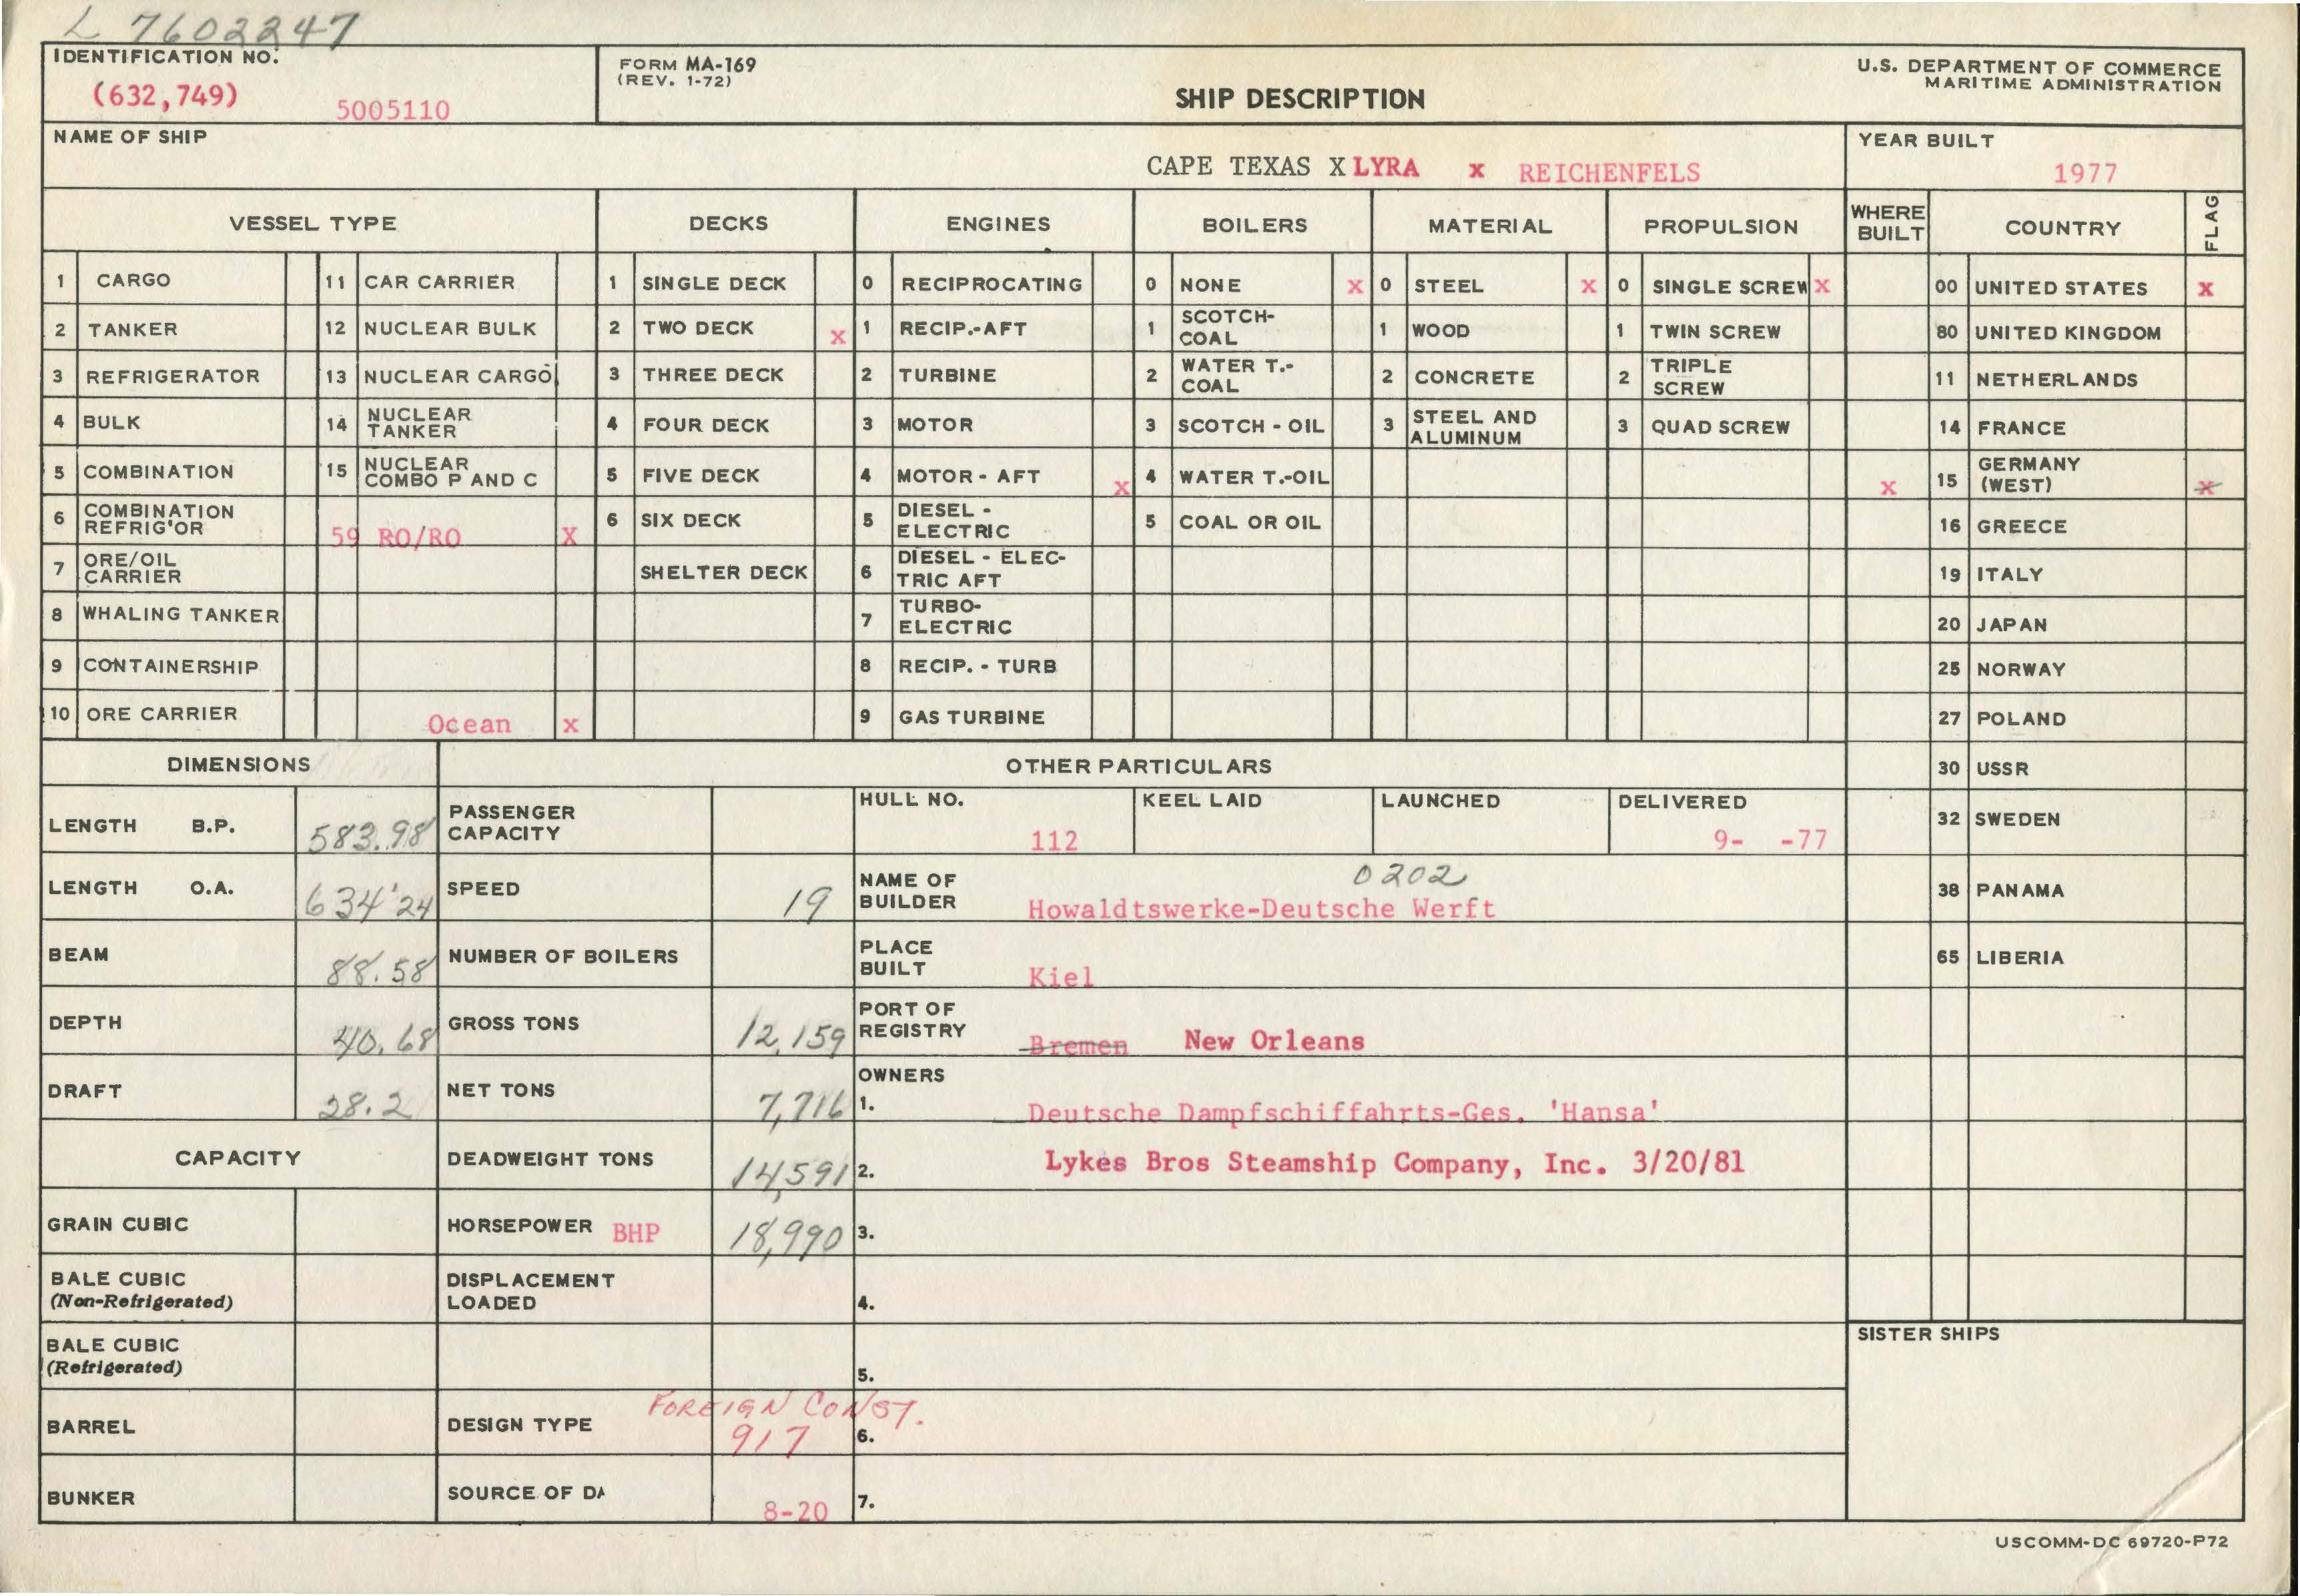 L 7602247
IDENTIFICATION NO.
(632,749) 5005110
FORM MA-169
(REV. 1-72)
SHIP DESCRIPTION
U.S. DEPARTMENT OF COMMERCE
MARITIME ADMINISTRATION
NAME OF SHIP
CAPE TEXAS X LYRA x REICHENFELS
YEAR BUILT
1977
VESSEL TYPE DECKS ENGINES BOILERS MATERIAL PROPULSION WHERE BUILT COUNTRY FLAG
1 CARGO 11 CAR CARRIER 1 SINGLE DECK 0 RECIPROCATING 0 NONE x 0 STEEL x 0 SINGLE SCREW x 00 UNITED STATES x
2 TANKER 12 NUCLEAR BULK 2 TWO DECK x 1 RECIP.-AFT 1 SCOTCH-COAL 1 WOOD 1 TWIN SCREW 80 UNITED KINGDOM
3 REFRIGERATOR 13 NUCLEAR CARGO 3 THREE DECK 2 TURBINE 2 WATER T.-COAL 2 CONCRETE 2 TRIPLE SCREW 11 NETHERLANDS
4 BULK 14 NUCLEAR TANKER 4 FOUR DECK 3 MOTOR 3 SCOTCH - OIL 3 STEEL AND ALUMINUM 3 QUAD SCREW 14 FRANCE
5 COMBINATION 15 NUCLEAR COMBO P AND C 5 FIVE DECK 4 MOTOR - AFT x 4 WATER T.-OIL x 15 GERMANY (WEST) x
6 COMBINATION REFRIG'OR 59 RO/RO X 6 SIX DECK 5 DIESEL - ELECTRIC 5 COAL OR OIL 16 GREECE
7 ORE/OIL CARRIER SHELTER DECK 6 DIESEL - ELEC-TRIC AFT 19 ITALY
8 WHALING TANKER 7 TURBO-ELECTRIC 20 JAPAN
9 CONTAINERSHIP 8 RECIP. - TURB 25 NORWAY
10 ORE CARRIER Ocean x 9 GAS TURBINE 27 POLAND
DIMENSIONS OTHER PARTICULARS 30 USSR
LENGTH B.P. 583.98 PASSENGER CAPACITY HULL NO. 112 KEEL LAID LAUNCHED DELIVERED 9- -77 32 SWEDEN
LENGTH O.A. 634'24 SPEED 19 NAME OF BUILDER 0202 Howaldtswerke-Deutsche Werft 38 PANAMA
BEAM 88.58 NUMBER OF BOILERS PLACE BUILT Kiel 65 LIBERIA
DEPTH 40.68 GROSS TONS 12,159 PORT OF REGISTRY Bremen New Orleans
DRAFT 28.2 NET TONS 7,716 OWNERS 1. Deutsche Dampfschiffahrts-Ges. 'Hansa'
CAPACITY DEADWEIGHT TONS 14,591 2. Lykes Bros Steamship Company, Inc. 3/20/81
GRAIN CUBIC HORSEPOWER BHP 18,990 3.
BALE CUBIC (Non-Refrigerated) DISPLACEMENT LOADED 4.
BALE CUBIC (Refrigerated) 5.
SISTER SHIPS
BARREL DESIGN TYPE FOREIGN CONST. 917 6.
BUNKER SOURCE OF DA 8-20 7.
USCOMM-DC 69720-P72